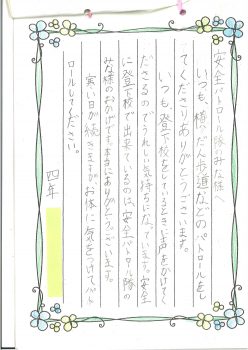 安全パトロール隊のみな様へ
いつも、横だん歩道などのパトロールをし
てくださりありがとうございます。
いつも、登下校をしているときに声をかけてく
ださるのでうれしい気持ちになっています。安全
に登下校で出来ているのは、安全パトロール隊の
みな様のおかげです。本当にありがとうございます。
寒い日が続きますが、お体に気をつけてパト
ロールしてください。
四年